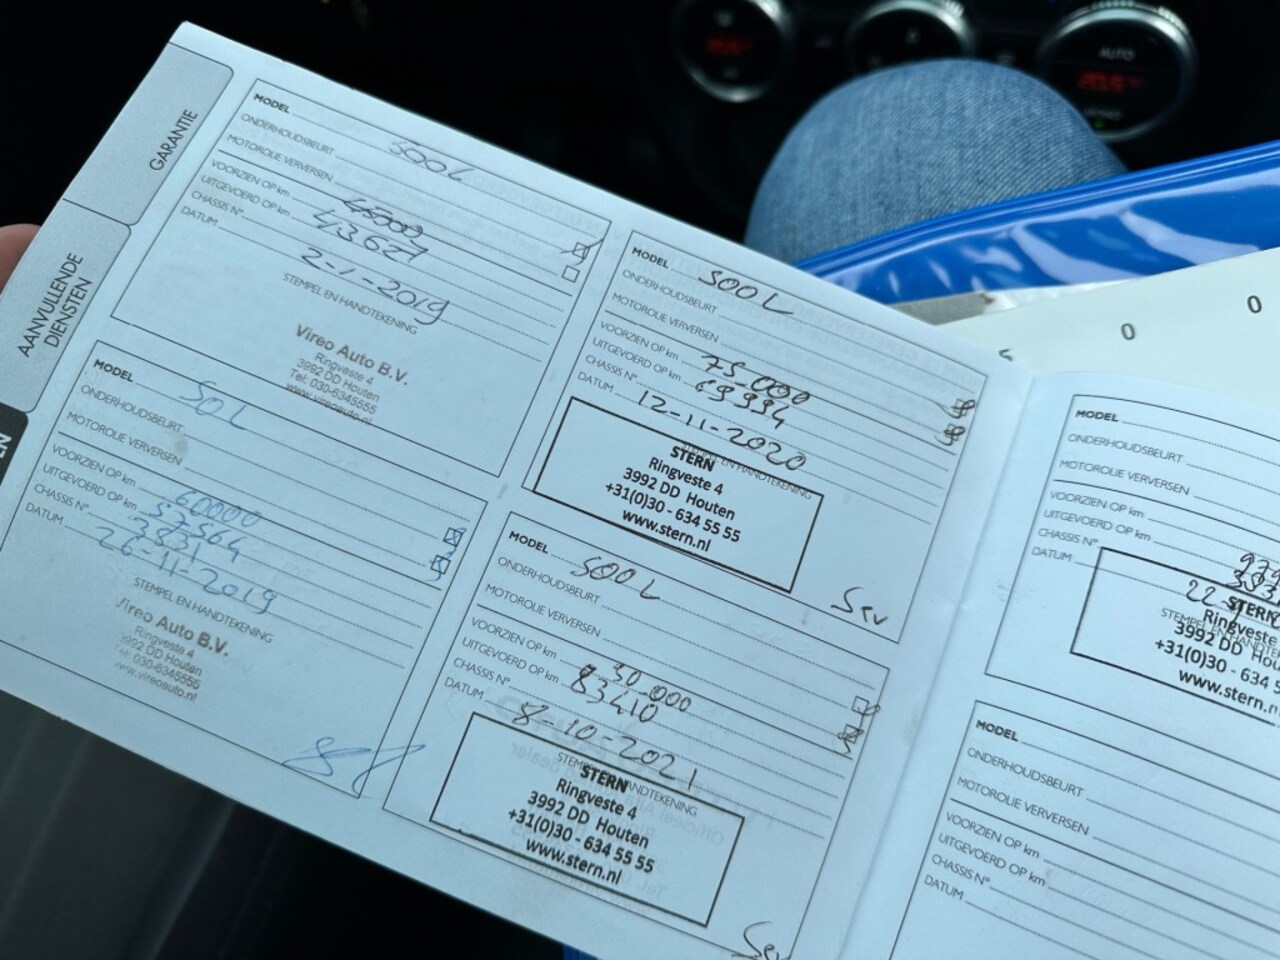 GARANTIE
AANVULLENDE
DIENSTEN
EN
MODEL 500L
ONDERHOUDSBEURT
MOTOROLIE VERVERSEN
VOORZIEN OP km 45000
UITGEVOERD OP km 43627
CHASSIS N°
DATUM 2-1-2019
STEMPEL EN HANDTEKENING
Vireo Auto B.V.
Ringveste 4
3992 DD Houten
Tel: 030-6345555
www.vireoauto.nl
MODEL 50L
ONDERHOUDSBEURT
MOTOROLIE VERVERSEN
VOORZIEN OP km 60000
UITGEVOERD OP km 57564
CHASSIS N° 3831
DATUM 26-11-2019
STEMPEL EN HANDTEKENING
Vireo Auto B.V.
Ringveste 4
3992 DD Houten
Tel: 030-6345555
www.vireoauto.nl
MODEL 500L
ONDERHOUDSBEURT
MOTOROLIE VERVERSEN
VOORZIEN OP km 75-000
UITGEVOERD OP km 69994
CHASSIS N°
DATUM 12-11-2020
STEMPEL EN HANDTEKENING
STERN
Ringveste 4
3992 DD Houten
+31(0)30 - 634 55 55
www.stern.nl
MODEL 500L
ONDERHOUDSBEURT
MOTOROLIE VERVERSEN
VOORZIEN OP km 90.000
UITGEVOERD OP km 83410
CHASSIS N°
DATUM 8-10-2021
STEMPEL EN HANDTEKENING
STERN
Ringveste 4
3992 DD Houten
+31(0)30 - 634 55 55
www.stern.nl
MODEL
ONDERHOUDSBEURT
MOTOROLIE VERVERSEN
VOORZIEN OP km
UITGEVOERD OP km
CHASSIS N°
DATUM 22
STEMPEL EN HANDTEKENING
STERN
Ringveste
3992 DD Hou
+31(0)30 - 634 5
www.stern.n
MODEL
ONDERHOUDSBEURT
MOTOROLIE VERVERSEN
VOORZIEN OP km
UITGEVOERD OP km
CHASSIS N°
DATUM
AUTO
0
0